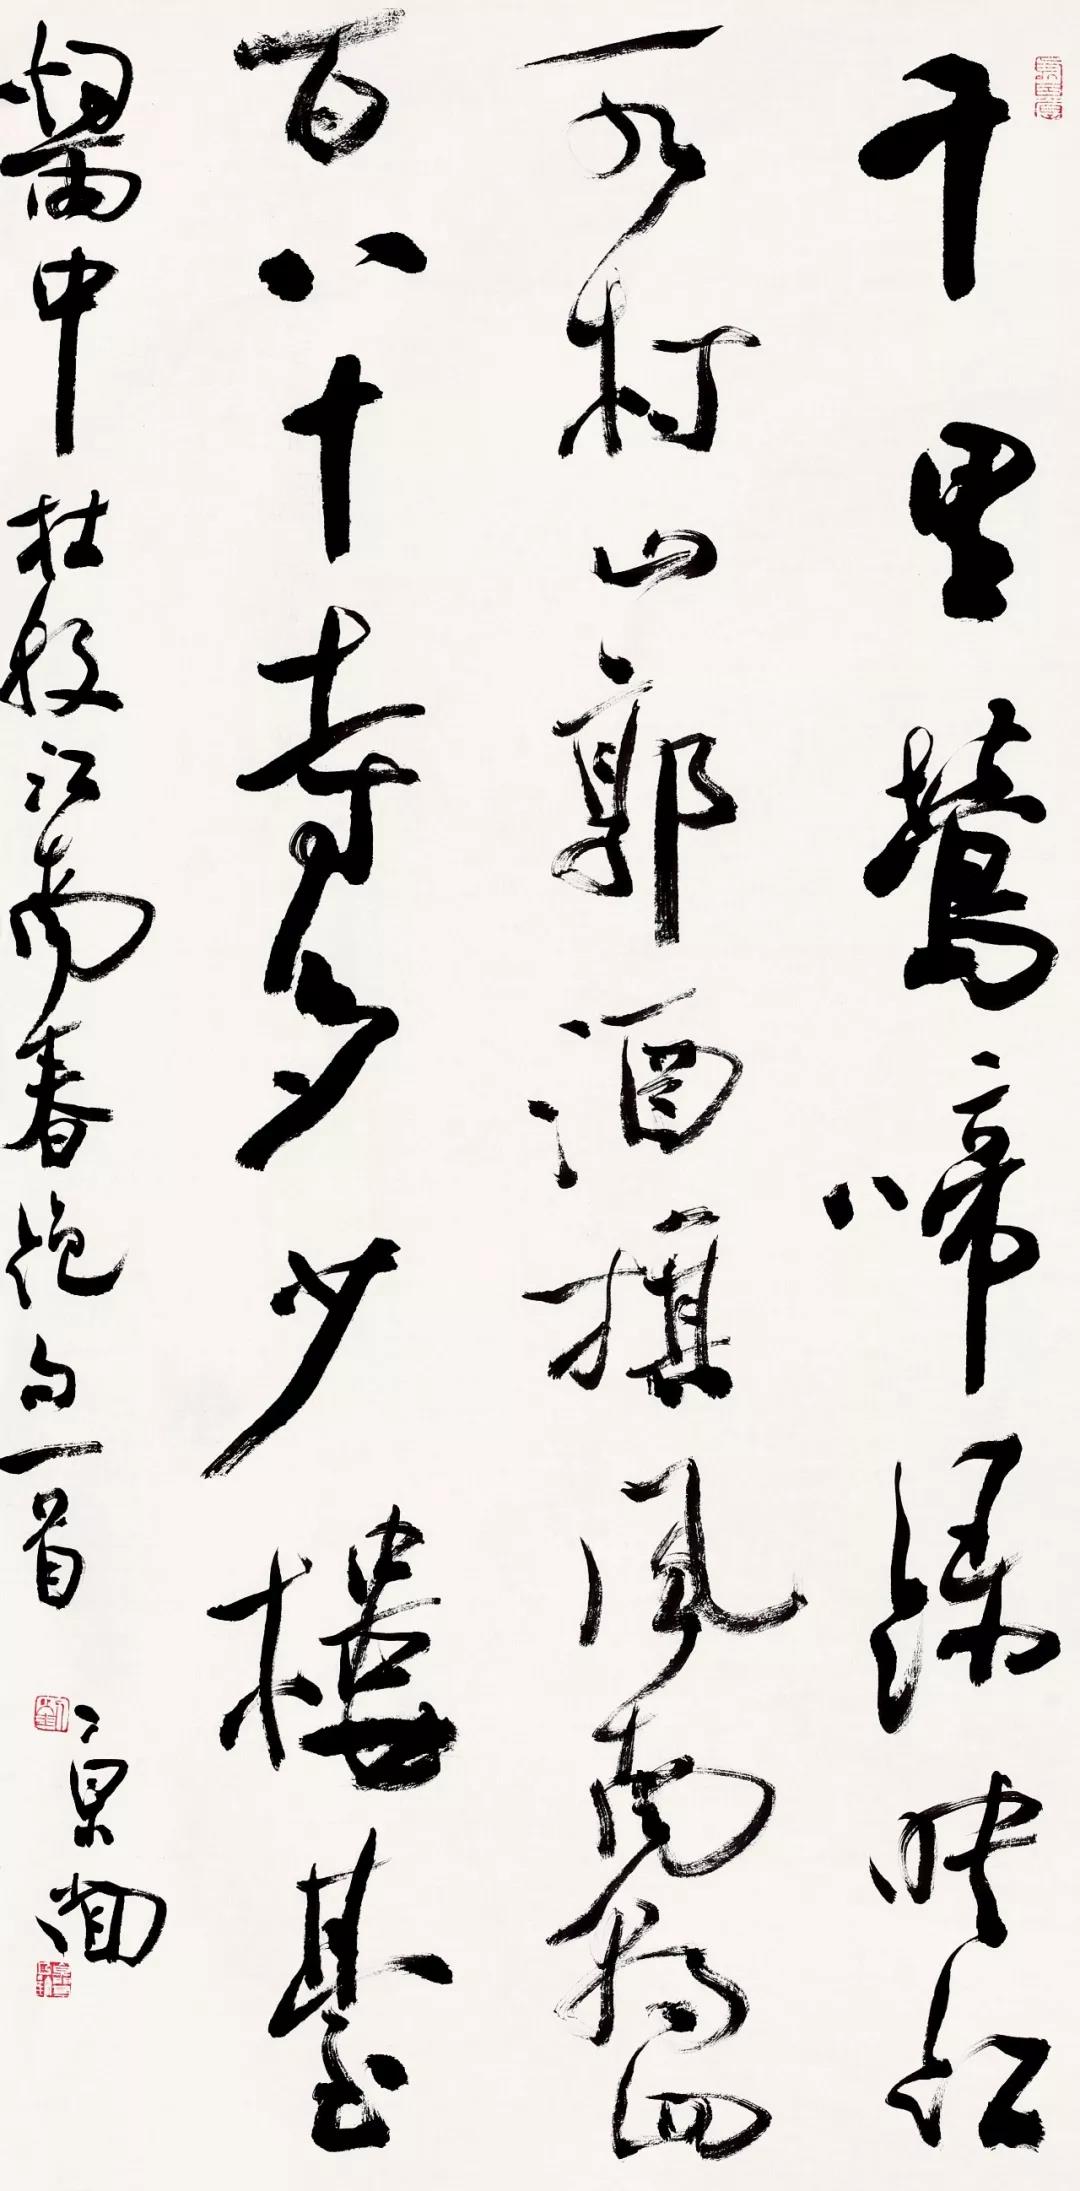 千里鶯啼綠映紅
水村山郭酒旗風南朝四
百八十寺多少樓臺
煙雨中杜牧江南春絕句一首
京聞